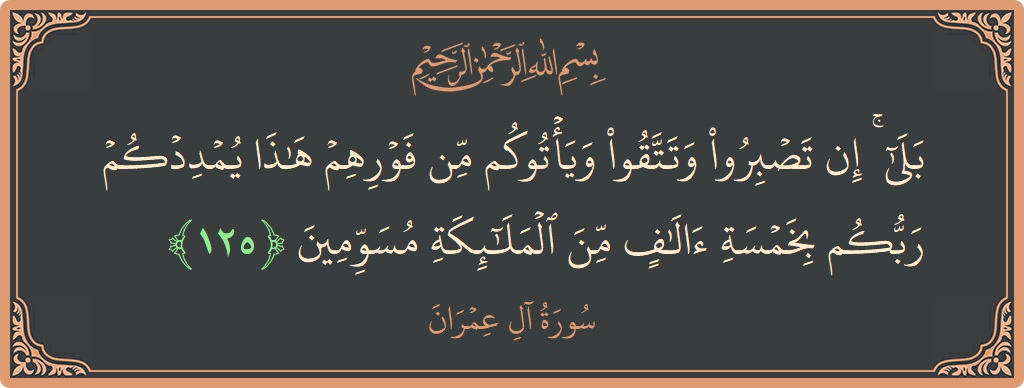 بِسْمِ اللهِ الرَّحْمٰنِ الرَّحِيْمِ
بَلَىٰٓۚ إِن تَصۡبِرُواْ وَتَتَّقُواْ وَيَأۡتُوكُم مِّن فَوۡرِهِمۡ هَٰذَا يُمۡدِدۡكُمۡ
رَبُّكُم بِخَمۡسَةِ ءَالَٰفٖ مِّنَ ٱلۡمَلَٰٓئِكَةِ مُسَوِّمِينَ ﴿١٢٥﴾
سُورَةُ آلِ عِمْرَانَ